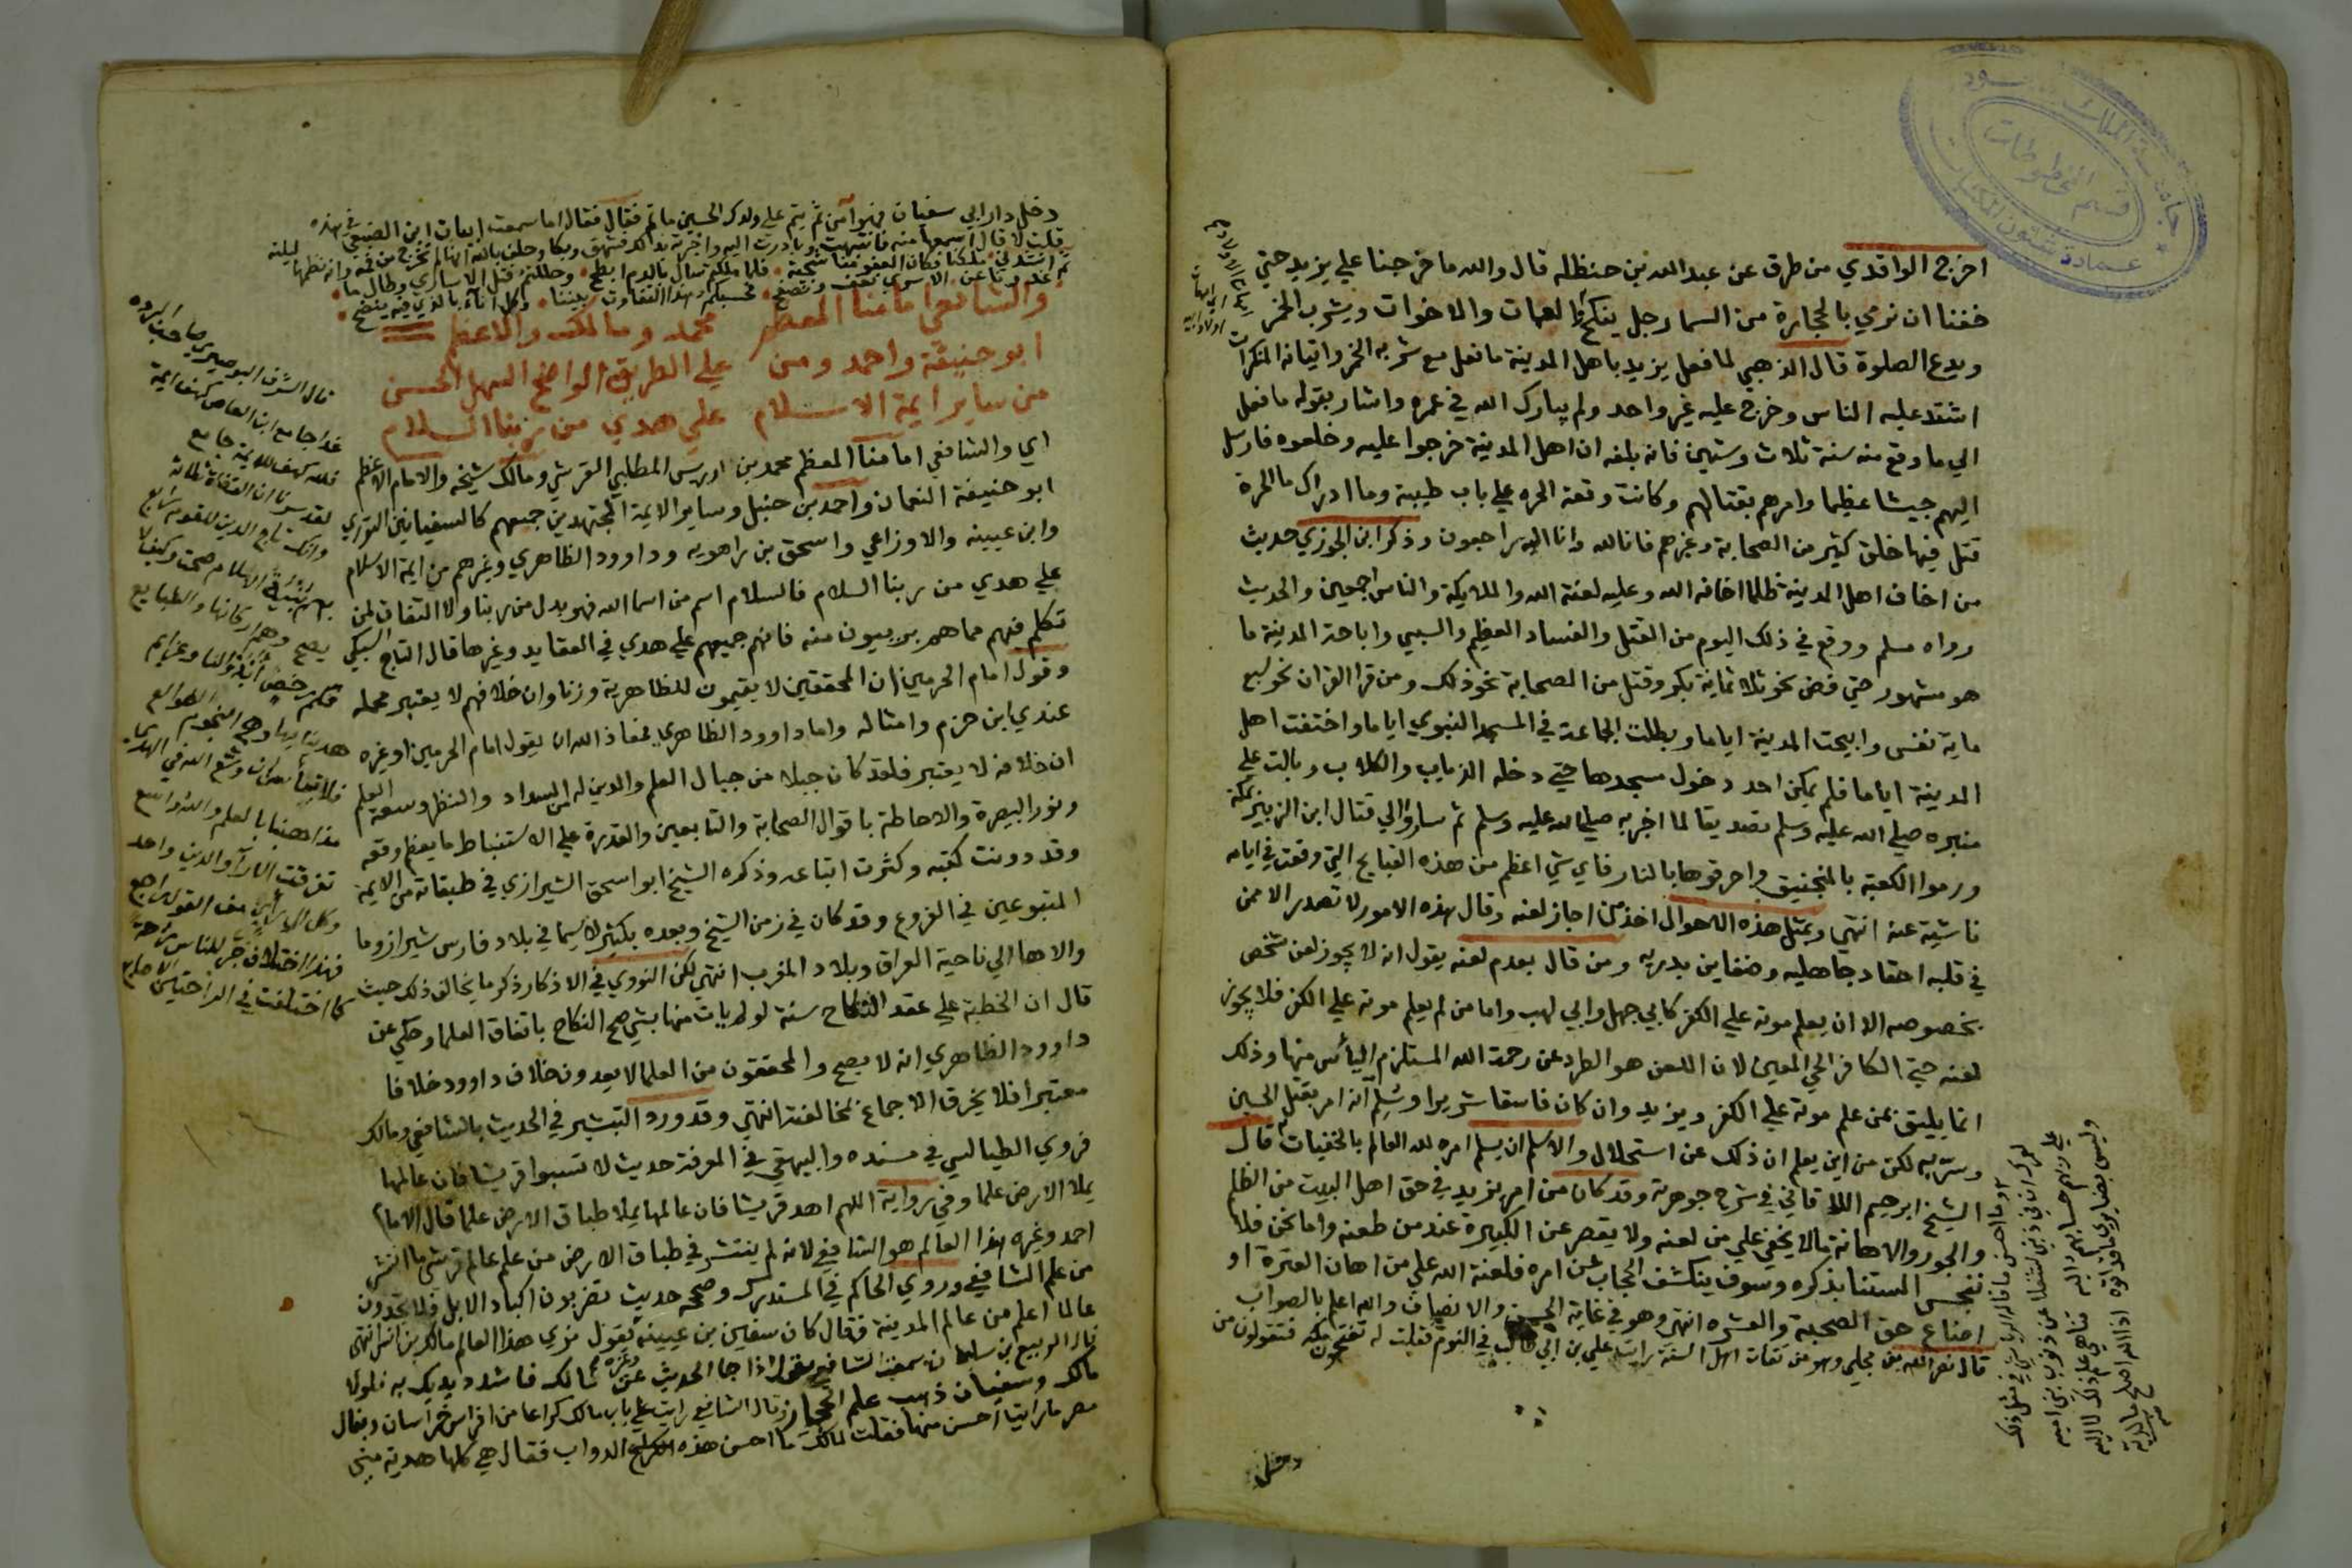 اخرج الواقدي من طرق عن عبد الله بن حنظلة قال والله ما خرجنا على يزيد حتى
خفنا ان نرمي بالحجارة من السما رجل ينكح العمات والاخوات ويشرب الخمر
ويدع الصلوة قال الذهبي لما فعل يزيد باهل المدينة ما فعل مع شربه الخمر واتيانه المنكرات
اشتد عليه الناس وخرج عليه غير واحد ولم يبارك الله في عمره واشار بقوله ما فعل
الي ما وقع منه سنة ثلاث وستين فانه بلغه ان اهل المدينة خرجوا عليه وخلعوه فارسل
اليهم جيشا عظيما وامرهم بقتالهم وكانت وقعة الحره علي باب طيبة وما ادراك ما الحرة
قتل فيها خلق كثير من الصحابة وغيرهم فانا لله وانا اليه راجعون وذكر ابن الجوزي حديث
من اخاف اهل المدينة ظلما اخافه الله وعليه لعنة الله والملايكة والناس اجمعين والحديث
رواه مسلم ووقع في ذلك اليوم من القتل والفساد العظيم والسبي واباحة المدينة ما
هو مشهور حتي فض نحو ثلاثماية بكر وقتل من الصحابة نحو ذلك ومن قرا القران نحو سبع
ماية نفس وابيحت المدينة اياما وبطلت الجماعة في المسجد النبوي اياما واختفت اهل
المدينة اياما فلم يمكن احد دخول مسجدها حتي دخله الذياب والكلاب وبالت علي
منبره صلي الله عليه وسلم تصديقا لما اخبر به صلي الله عليه وسلم ثم ساروا الي قتال ابن الزبير بمكة
ورموا الكعبة بالمنجنيق واحرقوها بالنار فاي شي اعظم من هذه القبايح التي وقعت في ايامه
ناشية عنه انتهي وبمثل هذه الاهوال اخذ من اجاز لعنه وقال بهذه الامور لا تصدر الا ممن
في قلبه احقاد جاهليه وضغاين بدريه ومن قال بعدم لعنه يقول انه لا يجوز لعن شخص
بخصوصه الا ان يعلم موته علي الكفر كابي جهل وابي لهب واما من لم يعلم موته علي الكفر فلا يجوز
لعنه حتي الكافر الحي المعين لان اللعن هو الطرد عن رحمة الله المستلزم اليأس منها وذلك
انما يليق بمن علم موته علي الكفر ويزيد وان كان فاسقا شريرا وسلم انه امر بقتل الحسين
وسر به لكن من اين يعلم ان ذلك عن استحلال والاسلم ان يسلم امره لله العالم بالخفيات قال
الشيخ ابرهيم اللاقاني في شرح جوهرته وقد كان من امر يزيد في حق اهل البيت من الظلم
والجور والاهانة ما لا يخفي علي من لعنه ولا يقصر عن الكبيرة عند من طعنه واما نحن فلا
ننجس السنتنا بذكره وسوف ينكشف الحجاب عن امره فلعنة الله علي من اهان العترة او
اضاع حق الصحبة والعشره انتهي وهو في غاية الحسن والانصاف والله اعلم بالصواب
قال نصر الله بن مجلي وهو من ثقات اهل السنة رايت علي بن ابي طالب في النوم فقلت له تفتحون مكة فتقولون من
دخل
وما احسن ما قاله في مثل ذلك
لعمرك ان في ذنبي لشغلا عن ذنوب بني امية
علي ربهم حسابهم اليه تناهي علم ذلك لا اليه
وليس بضايري ما قد اتوه اذا الله اصلح ما لديه
دخل دار ابي سفيان فهو آمن ثم يتم علي ولدك الحسين ما تم فقال اما سمعت ابيات ابن الصيفي في هذه
قلت لا قال اسمعها منه فانتبهت وبادرت اليه واخبرته بذلك فشهق وبكا وحلف بالله انها لم تخرج من فمه وانه نظمها ليلته
ثم انشدني ملكنا فكان العفو منا سجية فلما ملكتم سال بالدم ابطح وحللتم قتل الاساري وطال ما
غدونا عن الاسري نعف ونصفح فحسبكم هذا التفاوت بيننا وكل اناء بالذي فيه ينضح
والشافعي امامنا المعظم محمد ومالك والاعظم
ابو حنيفة واحمد ومن علي الطريق الواضح السهل الحسن
من ساير ايمة الاسلام علي هدي من ربنا السلام
اي والشافعي امامنا المعظم محمد بن ادريس المطلبي القرشي ومالك شيخه والامام الاعظم
ابو حنيفة النعمان واحمد بن حنبل وساير الايمة المجتهدين جميعهم كالسفيانين الثوري
وابن عيينه والاوزاعي واسحق بن راهويه وداوود الظاهري وغيرهم من ايمة الاسلام
علي هدي من ربنا السلام فالسلام اسم من اسما الله فهو بدل من ربنا ولا التفات لمن
تكلم فيهم مما هم بريون منه فانهم جميعهم علي هدي في العقايد وغيرها قال التاج السبكي
وقول امام الحرمين ان المحققين لا يقيمون للظاهرية وزنا وان خلافهم لا يعتبر محمله
عندي ابن حزم وامثاله واما داوود الظاهري فمعاذ الله ان يقول امام الحرمين او غيره
ان خلافه لا يعتبر فلقد كان جبلا من جبال العلم والدين له من السداد والنظر وسعة العلم
ونور البصيرة والاحاطة باقوال الصحابة والتابعين والقدرة علي الاستنباط ما يعظم وقعه
وقد دونت كتبه وكثرت اتباعه وذكره الشيخ ابو اسحق الشيرازي في طبقاته من الايمة
المتبوعين في الفروع وقد كان في زمن الشيخ وبعده بكثير لا سيما في بلاد فارس شيراز وما
والاها الي ناحية العراق وبلاد المغرب انتهي لكن النووي في الاذكار ذكر ما يخالف ذلك حيث
قال ان الخطبة علي عقد النكاح سنة لو لم يات منها بشي صح النكاح باتفاق العلما وحكي عن
داوود الظاهري انه لا يصح والمحققون من العلما لا يعدون خلاف داوود خلافا
معتبرا فلا يخرق الاجماع لمخالفته انتهي وقد ورد التبشير في الحديث بالشافعي ومالك
فروي الطيالسي في مسنده والبيهقي في المعرفة حديث لا تسبوا قريشا فان عالمها
يملا الارض علما وفي رواية اللهم اهد قريشا فان عالمها يملا طباق الارض علما قال الامام
احمد وغيره هذا العالم هو الشافعي لانه لم ينتشر في طباق الارض من علم عالم قرشي ما انتشر
من علم الشافعي وروي الحاكم في المستدرك وصححه حديث تضربون اكباد الابل فلا تجدون
عالما اعلم من عالم المدينة فقال كان سفين بن عيينة يقول نري هذا العالم مالك بن انس انتهي
قال الربيع بن سليمان سمعت الشافعي يقول اذا جا الحديث عن مالك فاشدد يديك به فلولا
مالك وسفيان ذهب علم الحجاز وقال الشافعي رايت علي باب مالك كراعا من افراس خراسان وبغال
مصر ما رايت احسن منها فقلت لمالك ما احسن هذه الدواب فقال هي كلها هدية مني
قال الشرف البوصيري صاحب البرده
غدا جامع ابن العاص كهف ايمة
فلله كهف للايمة جامع
لقد سرنا ان القضاة ثلاثة
وانك تاج الدين للقوم رابع
بهم بنية الاسلام صحت وكيف لا
يصح وهم اركانها والطبايع
هدينا بها وهي النجوم الطوالع
مذاهبنا بالعلم والله واسع
تفرقت الارآ والدين واحد
وكل الي راي من القول راجع
فهذا اختلاف جر للناس راحة
كما اختلفت في الراحتين الاصابع